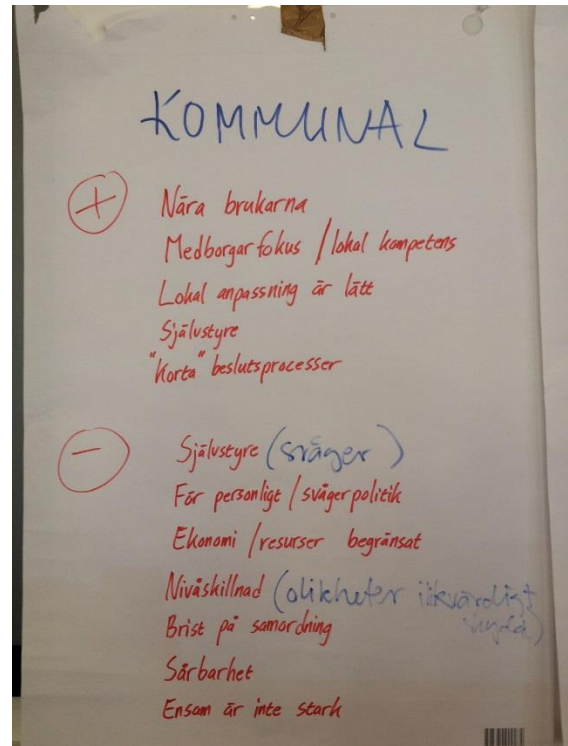 KOMMUNAL
+ Nära brukarna
Medborgarfokus / lokal kompetens
Lokal anpassning är lätt
Självstyre
"Korta" beslutsprocesser
- Självstyre (svåger)
För personligt / svågerpolitik
Ekonomi / resurser begränsat
Nivåskillnad (olikheter
Brist på samordning
Sårbarhet
Ensam är inte stark